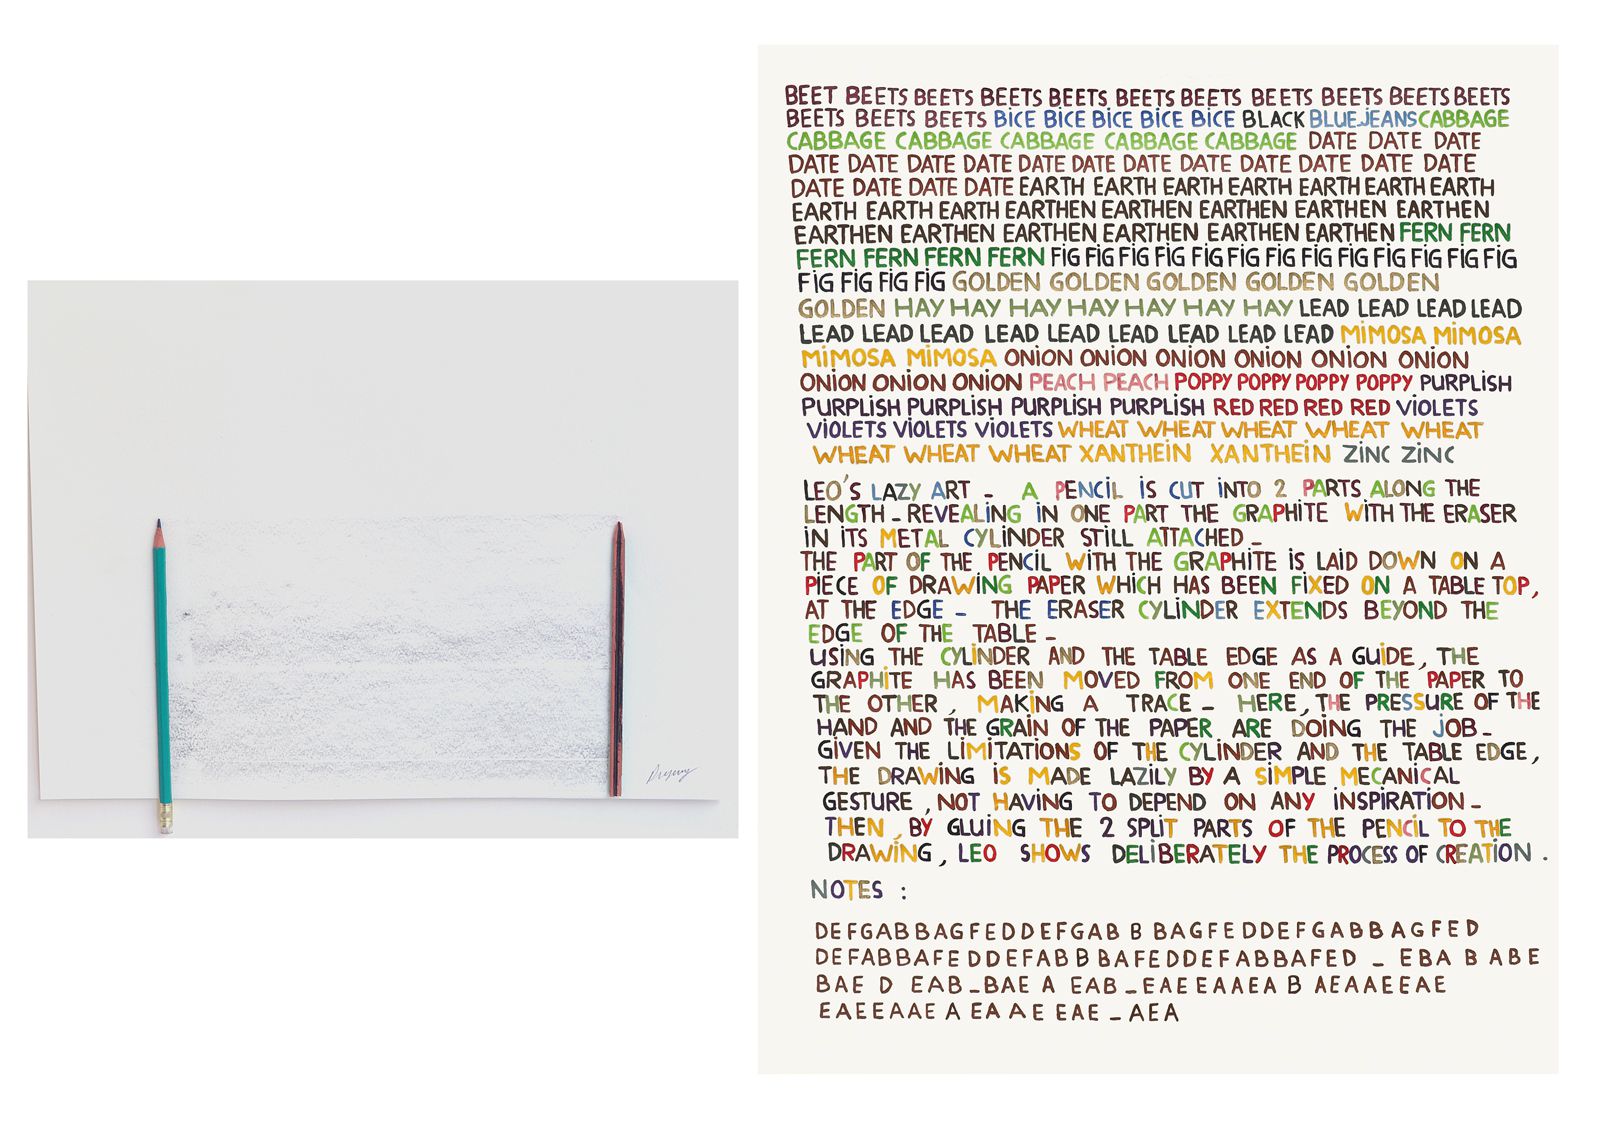 BEET BEETS BEETS BEETS BEETS BEETS BEETS BEETS BEETS BEETS BEETS
BEETS BEETS BEETS BICE BICE BICE BICE BICE BLACK BLUEJEANS CABBAGE
CABBAGE CABBAGE CABBAGE CABBAGE CABBAGE DATE DATE DATE
DATE DATE DATE DATE DATE DATE DATE DATE DATE DATE DATE DATE
DATE DATE DATE DATE EARTH EARTH EARTH EARTH EARTH EARTH EARTH
EARTH EARTH EARTH EARTHEN EARTHEN EARTHEN EARTHEN EARTHEN
EARTHEN EARTHEN EARTHEN EARTHEN EARTHEN EARTHEN FERN FERN
FERN FERN FERN FERN FIG FIG FIG FIG FIG FIG FIG FIG FIG FIG FIG FIG FIG
FIG FIG FIG FIG GOLDEN GOLDEN GOLDEN GOLDEN GOLDEN
GOLDEN HAY HAY HAY HAY HAY HAY HAY LEAD LEAD LEAD LEAD
LEAD LEAD LEAD LEAD LEAD LEAD LEAD LEAD LEAD MIMOSA MIMOSA
MIMOSA MIMOSA ONION ONION ONION ONION ONION ONION
ONION ONION ONION PEACH PEACH POPPY POPPY POPPY POPPY PURPLISH
PURPLISH PURPLISH PURPLISH PURPLISH RED RED RED RED VIOLETS
VIOLETS VIOLETS VIOLETS WHEAT WHEAT WHEAT WHEAT WHEAT
WHEAT WHEAT WHEAT XANTHEIN XANTHEIN ZINC ZINC
LEO'S LAZY ART - A PENCIL IS CUT INTO 2 PARTS ALONG THE
LENGTH - REVEALING IN ONE PART THE GRAPHITE WITH THE ERASER
IN ITS METAL CYLINDER STILL ATTACHED -
THE PART OF THE PENCIL WITH THE GRAPHITE IS LAID DOWN ON A
PIECE OF DRAWING PAPER WHICH HAS BEEN FIXED ON A TABLE TOP,
AT THE EDGE - THE ERASER CYLINDER EXTENDS BEYOND THE
EDGE OF THE TABLE -
USING THE CYLINDER AND THE TABLE EDGE AS A GUIDE, THE
GRAPHITE HAS BEEN MOVED FROM ONE END OF THE PAPER TO
THE OTHER, MAKING A TRACE - HERE, THE PRESSURE OF THE
HAND AND THE GRAIN OF THE PAPER ARE DOING THE JOB -
GIVEN THE LIMITATIONS OF THE CYLINDER AND THE TABLE EDGE,
THE DRAWING IS MADE LAZILY BY A SIMPLE MECANICAL
GESTURE, NOT HAVING TO DEPEND ON ANY INSPIRATION -
THEN, BY GLUING THE 2 SPLIT PARTS OF THE PENCIL TO THE
DRAWING, LEO SHOWS DELIBERATELY THE PROCESS OF CREATION.
NOTES :
DEFGABBAGFEDDEFGAB B BAGFEDDEFGABBAGFED
DEFABBAFEDDEFABBBAFEDDEFABBAFED - EBA B ABE
BAE D EAB - BAE A EAB - EAEEAAEA B AEAAEEAE
EAEEAAE A EAAE EAE - AEA